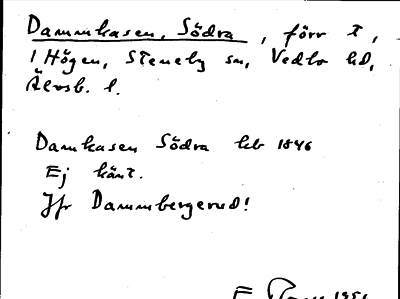 Dammkasen, Södra, förr t,
1 Högen, Steneby sn, Vedbo hd,
Älvsb. l.
Damkasen Södra hb 1846
Ej känt.
Jfr Dammbergerud!
E